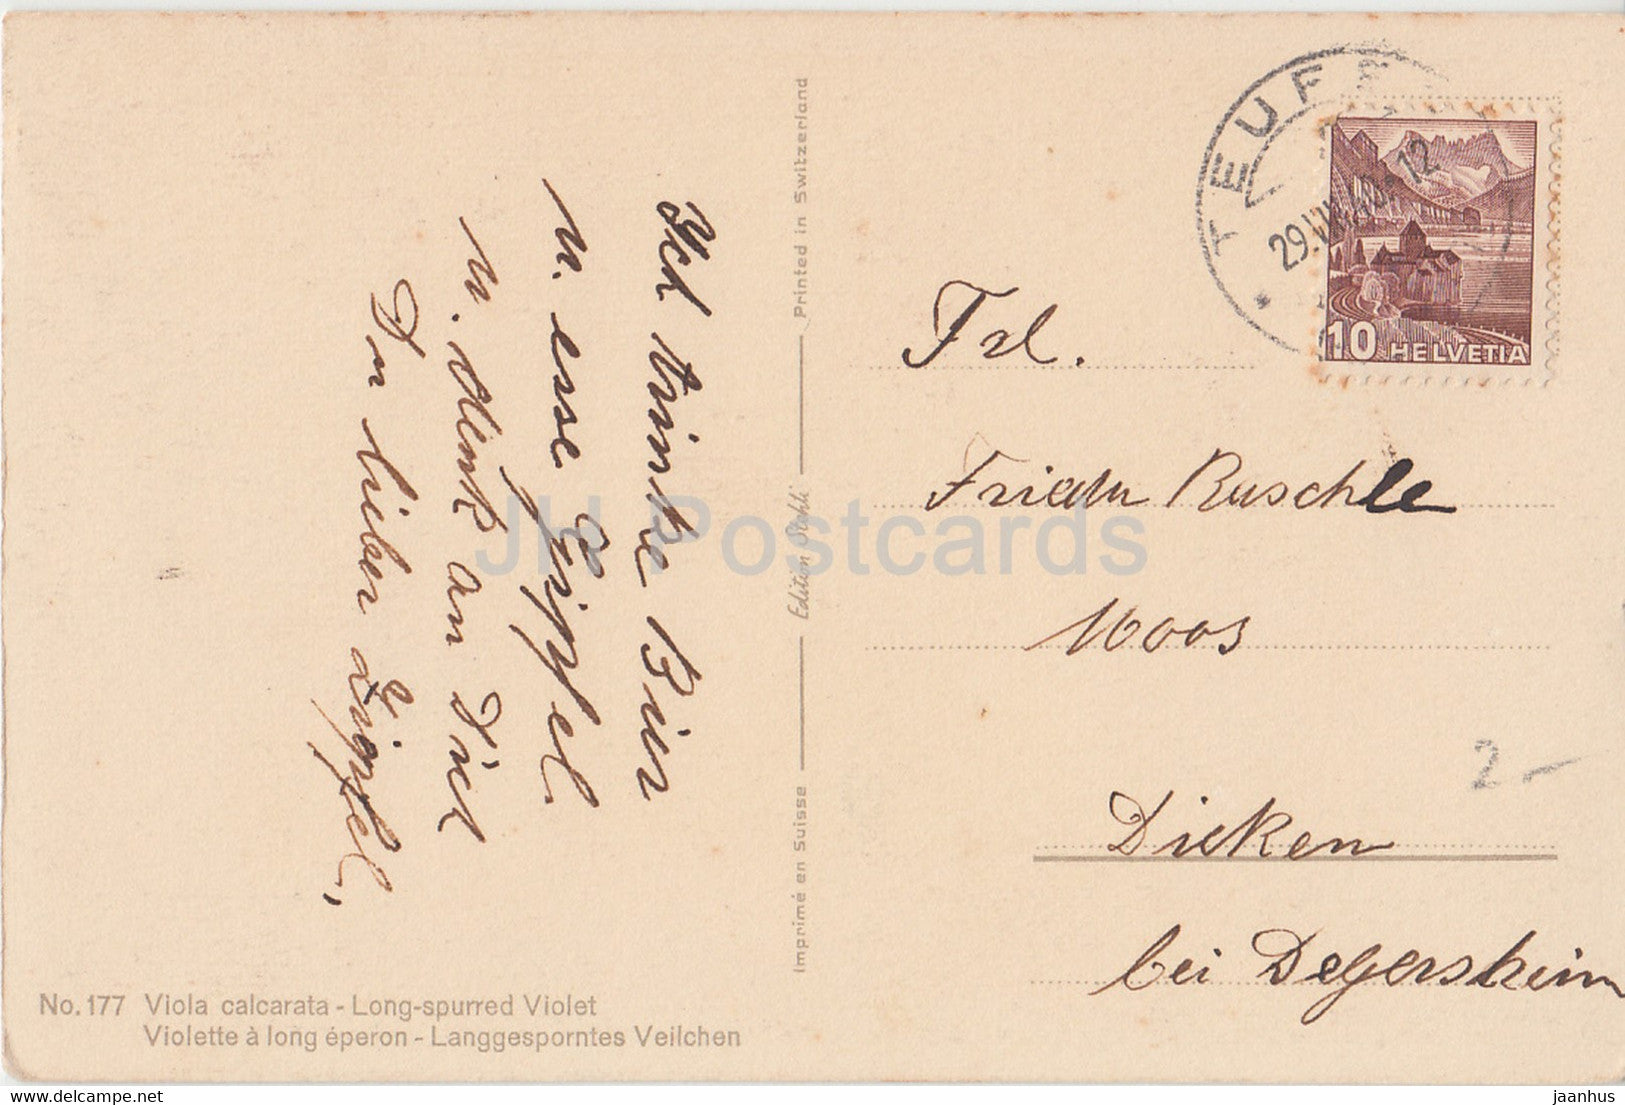 Ich trinke Bier
u. esse Gipfel
u. denk an Dich
Du lieber Zipfel,
Printed in Switzerland
Edition Stehli
Imprimé en Suisse
TEUFE
29.VII.40. 12
10 HELVETIA
Frl.
Frieda Ruschle
Moos
Dicken
bei Degersheim
2 -
No. 177 Viola calcarata - Long-spurred Violet
Violette à long éperon - Langgesporntes Veilchen
JH Postcards
www.delcampe.net
jaanhus